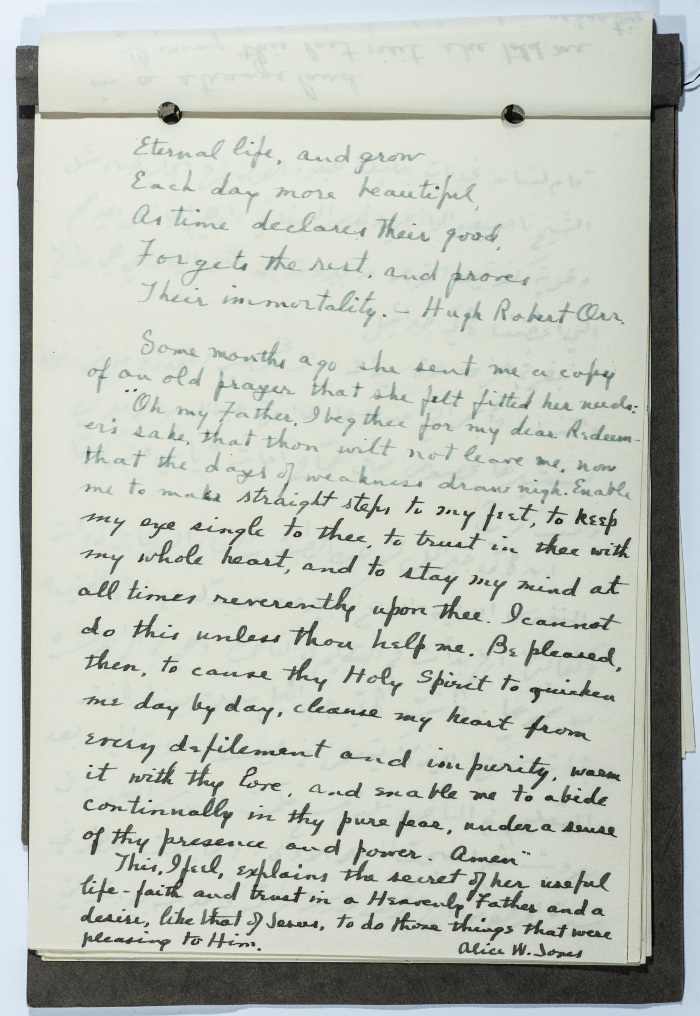 Eternal life, and grow
Each day more beautiful,
As time declares their good,
Forgets the rest, and proves
Their immortality. - Hugh Robert Orr.
Some months ago she sent me a copy
of an old prayer that she felt fitted her needs:
"Oh my Father, I beg thee for my dear Redeem-
er's sake, that thou wilt not leave me, now
that the days of weakness draw nigh. Enable
me to make straight steps to my feet, to keep
my eye single to thee, to trust in thee with
my whole heart, and to stay my mind at
all times reverently upon thee. I cannot
do this unless thou help me. Be pleased,
then, to cause thy Holy Spirit to quicken
me day by day, cleanse my heart from
every defilement and impurity, warm
it with thy love, and enable me to abide
continually in thy pure fear, under a sense
of thy presence and power. Amen"
This, I feel, explains the secret of her useful
life - faith and trust in a Heavenly Father and a
desire, like that of Jesus, to do those things that were
pleasing to Him.
Alice W. Jones